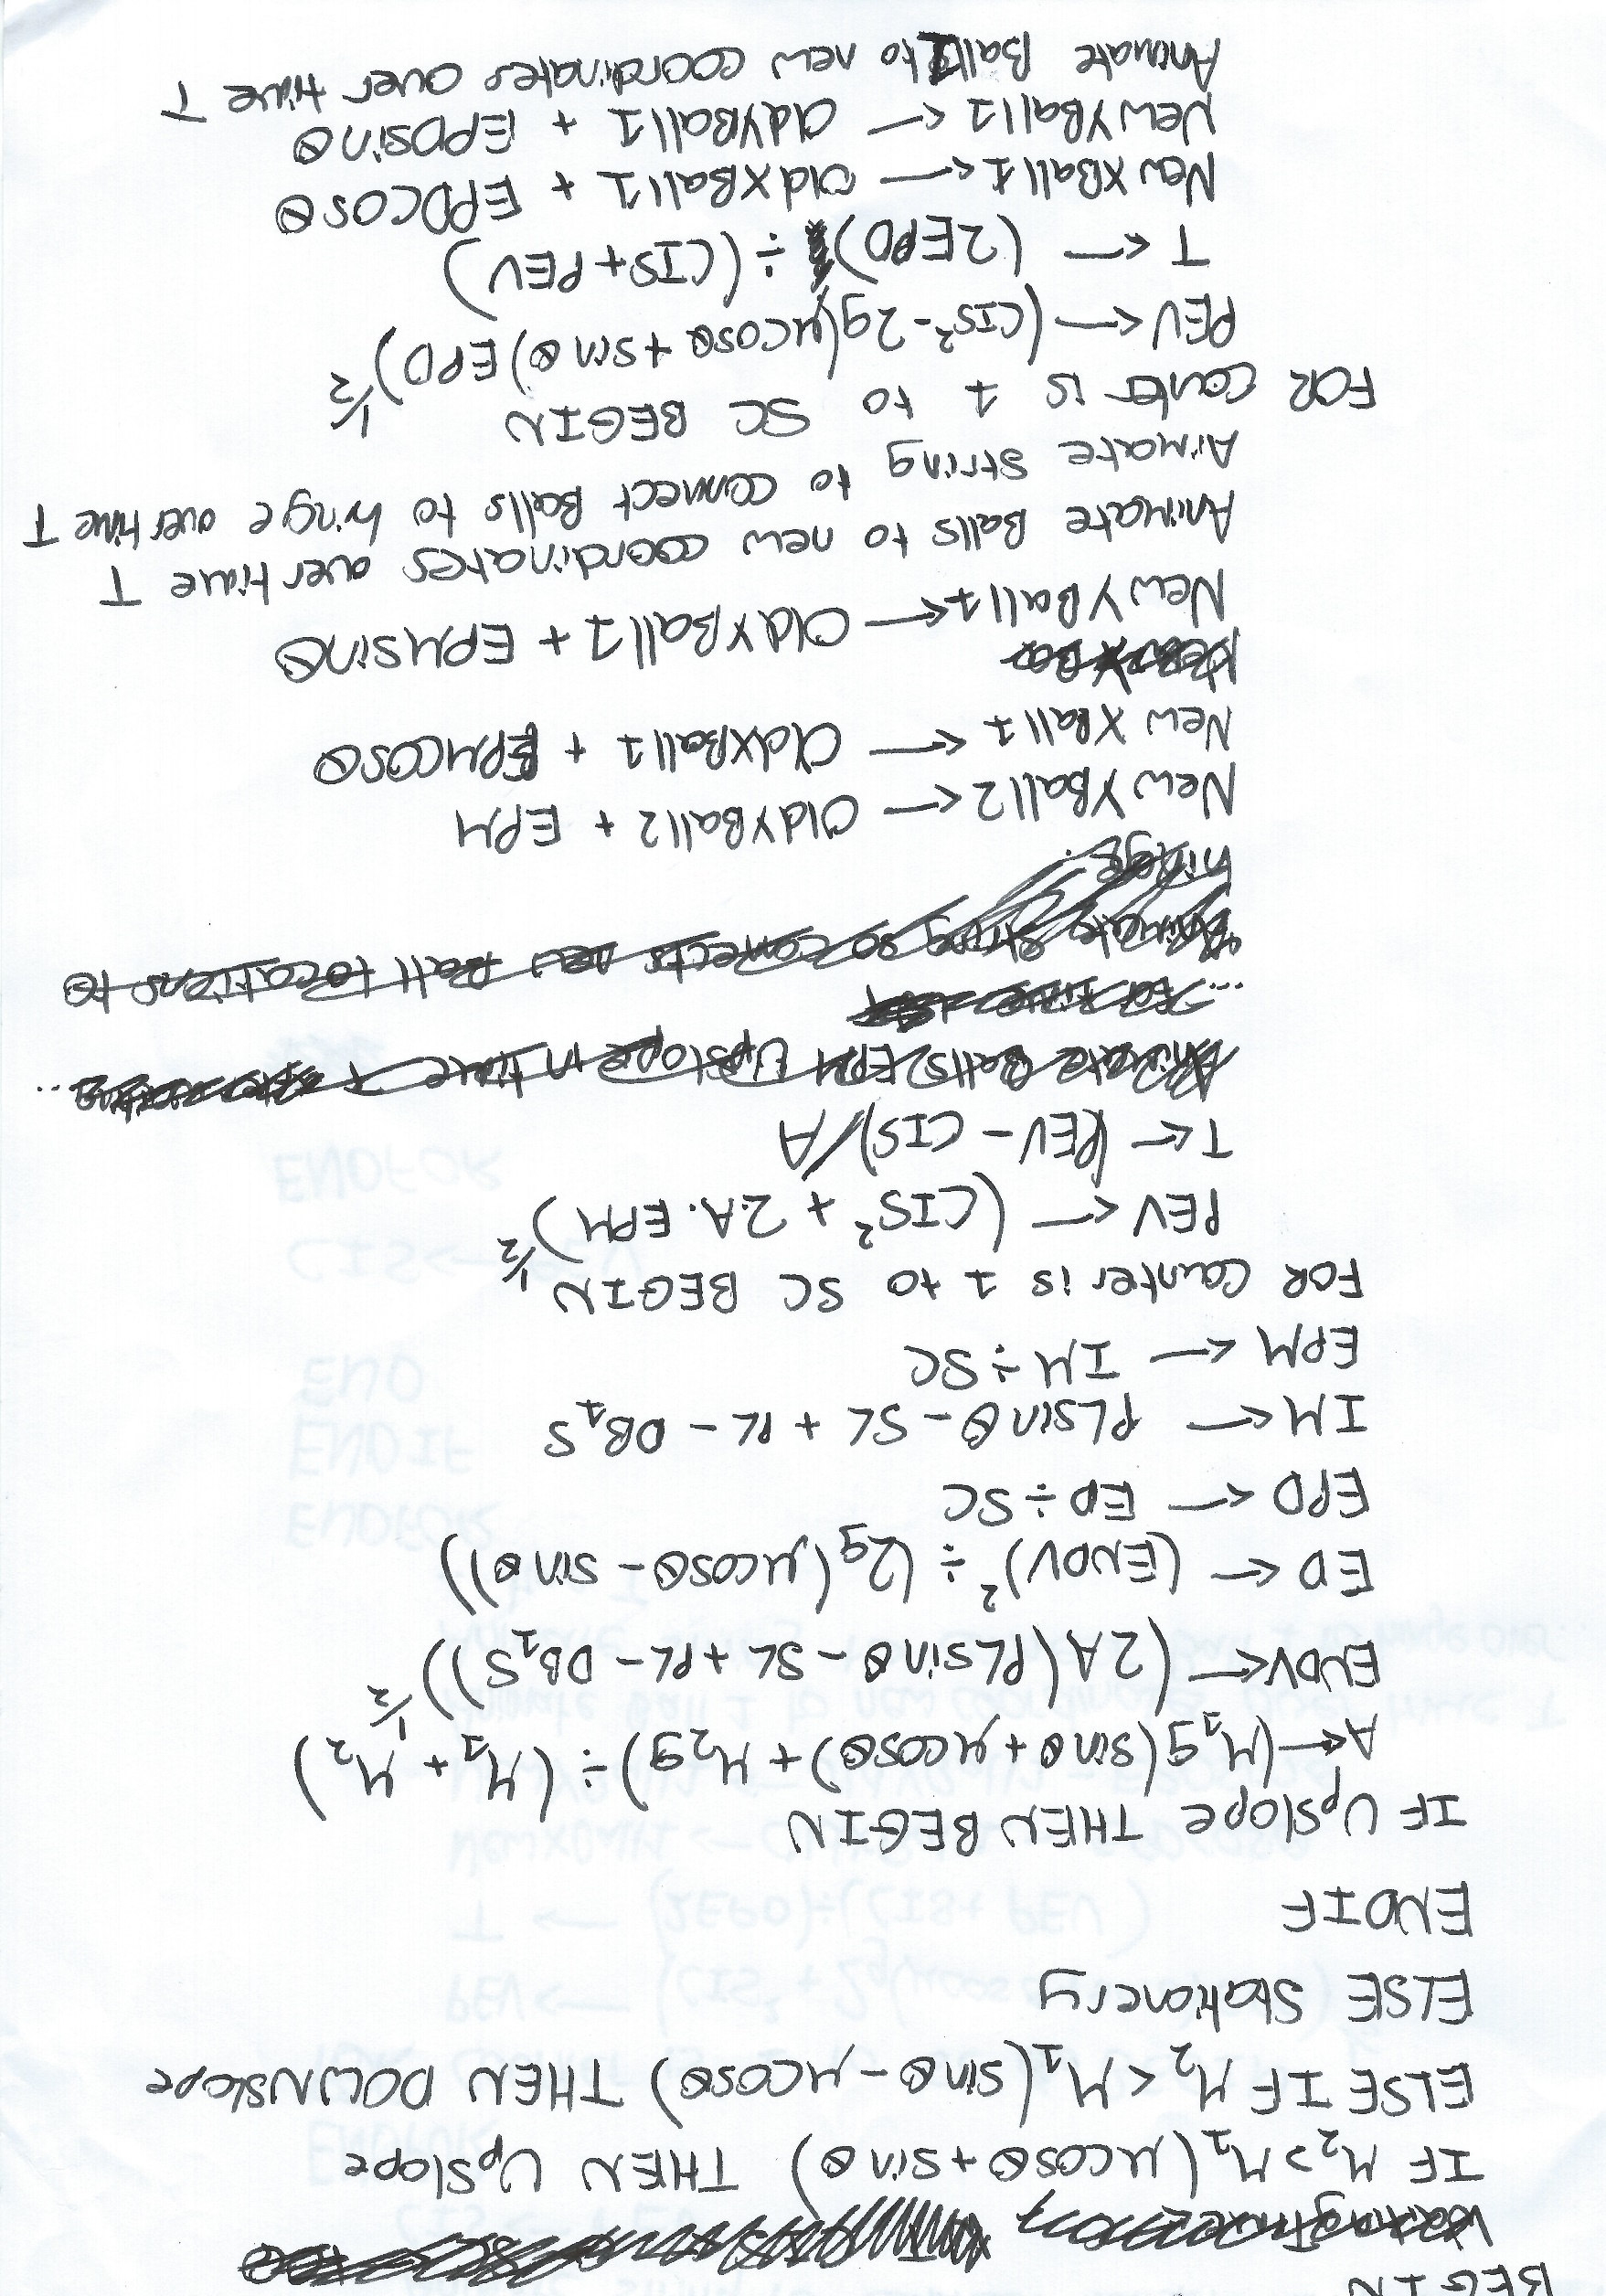 BEGIN
IF M₂ > M₁(μcosθ + sinθ) THEN UpSlope
ELSE IF M₂ < M₁(sinθ - μcosθ) THEN DOWNSlope
ELSE Stationery
ENDIF
IF UpSlope THEN BEGIN
A ← (M₁g(sinθ + μcosθ) + M₂g) ÷ (M₁ + M₂)
ENDV ← (2A(PLsinθ - SL + PL - DB₁S))^1/2
ED ← (ENDV)² ÷ (2g(μcosθ - sinθ))
EPD ← ED ÷ SC
IM ← PLsinθ - SL + PL - DB₁S
EPM ← IM ÷ SC
FOR Counter is 1 to SC BEGIN
PEV ← (CIS² + 2A.EPM)^1/2
T ← (PEV - CIS)/A
Animate Balls EPM Upslope in time T
Animate string so connects new Ball locations to
hinge.
New YBall2 ← OldYBall2 + EPM
New XBall1 ← OldXBall1 + EPMcosθ
New YBall1 ← OldYBall1 + EPMsinθ
Animate Balls to new coordinates over time T
Aimate string to connect Balls to hinge over time T
FOR Conter is 1 to SC BEGIN
PEV ← (CIS² - 2g(μcosθ + sinθ)EPD)^1/2
T ← (2EPD) ÷ (CIS + PEV)
NewXBall1 ← OldXBall1 + EPDcosθ
NewYBall1 ← OldYBall1 + EPDsinθ
Animate Ball1 to new coordinates over time T